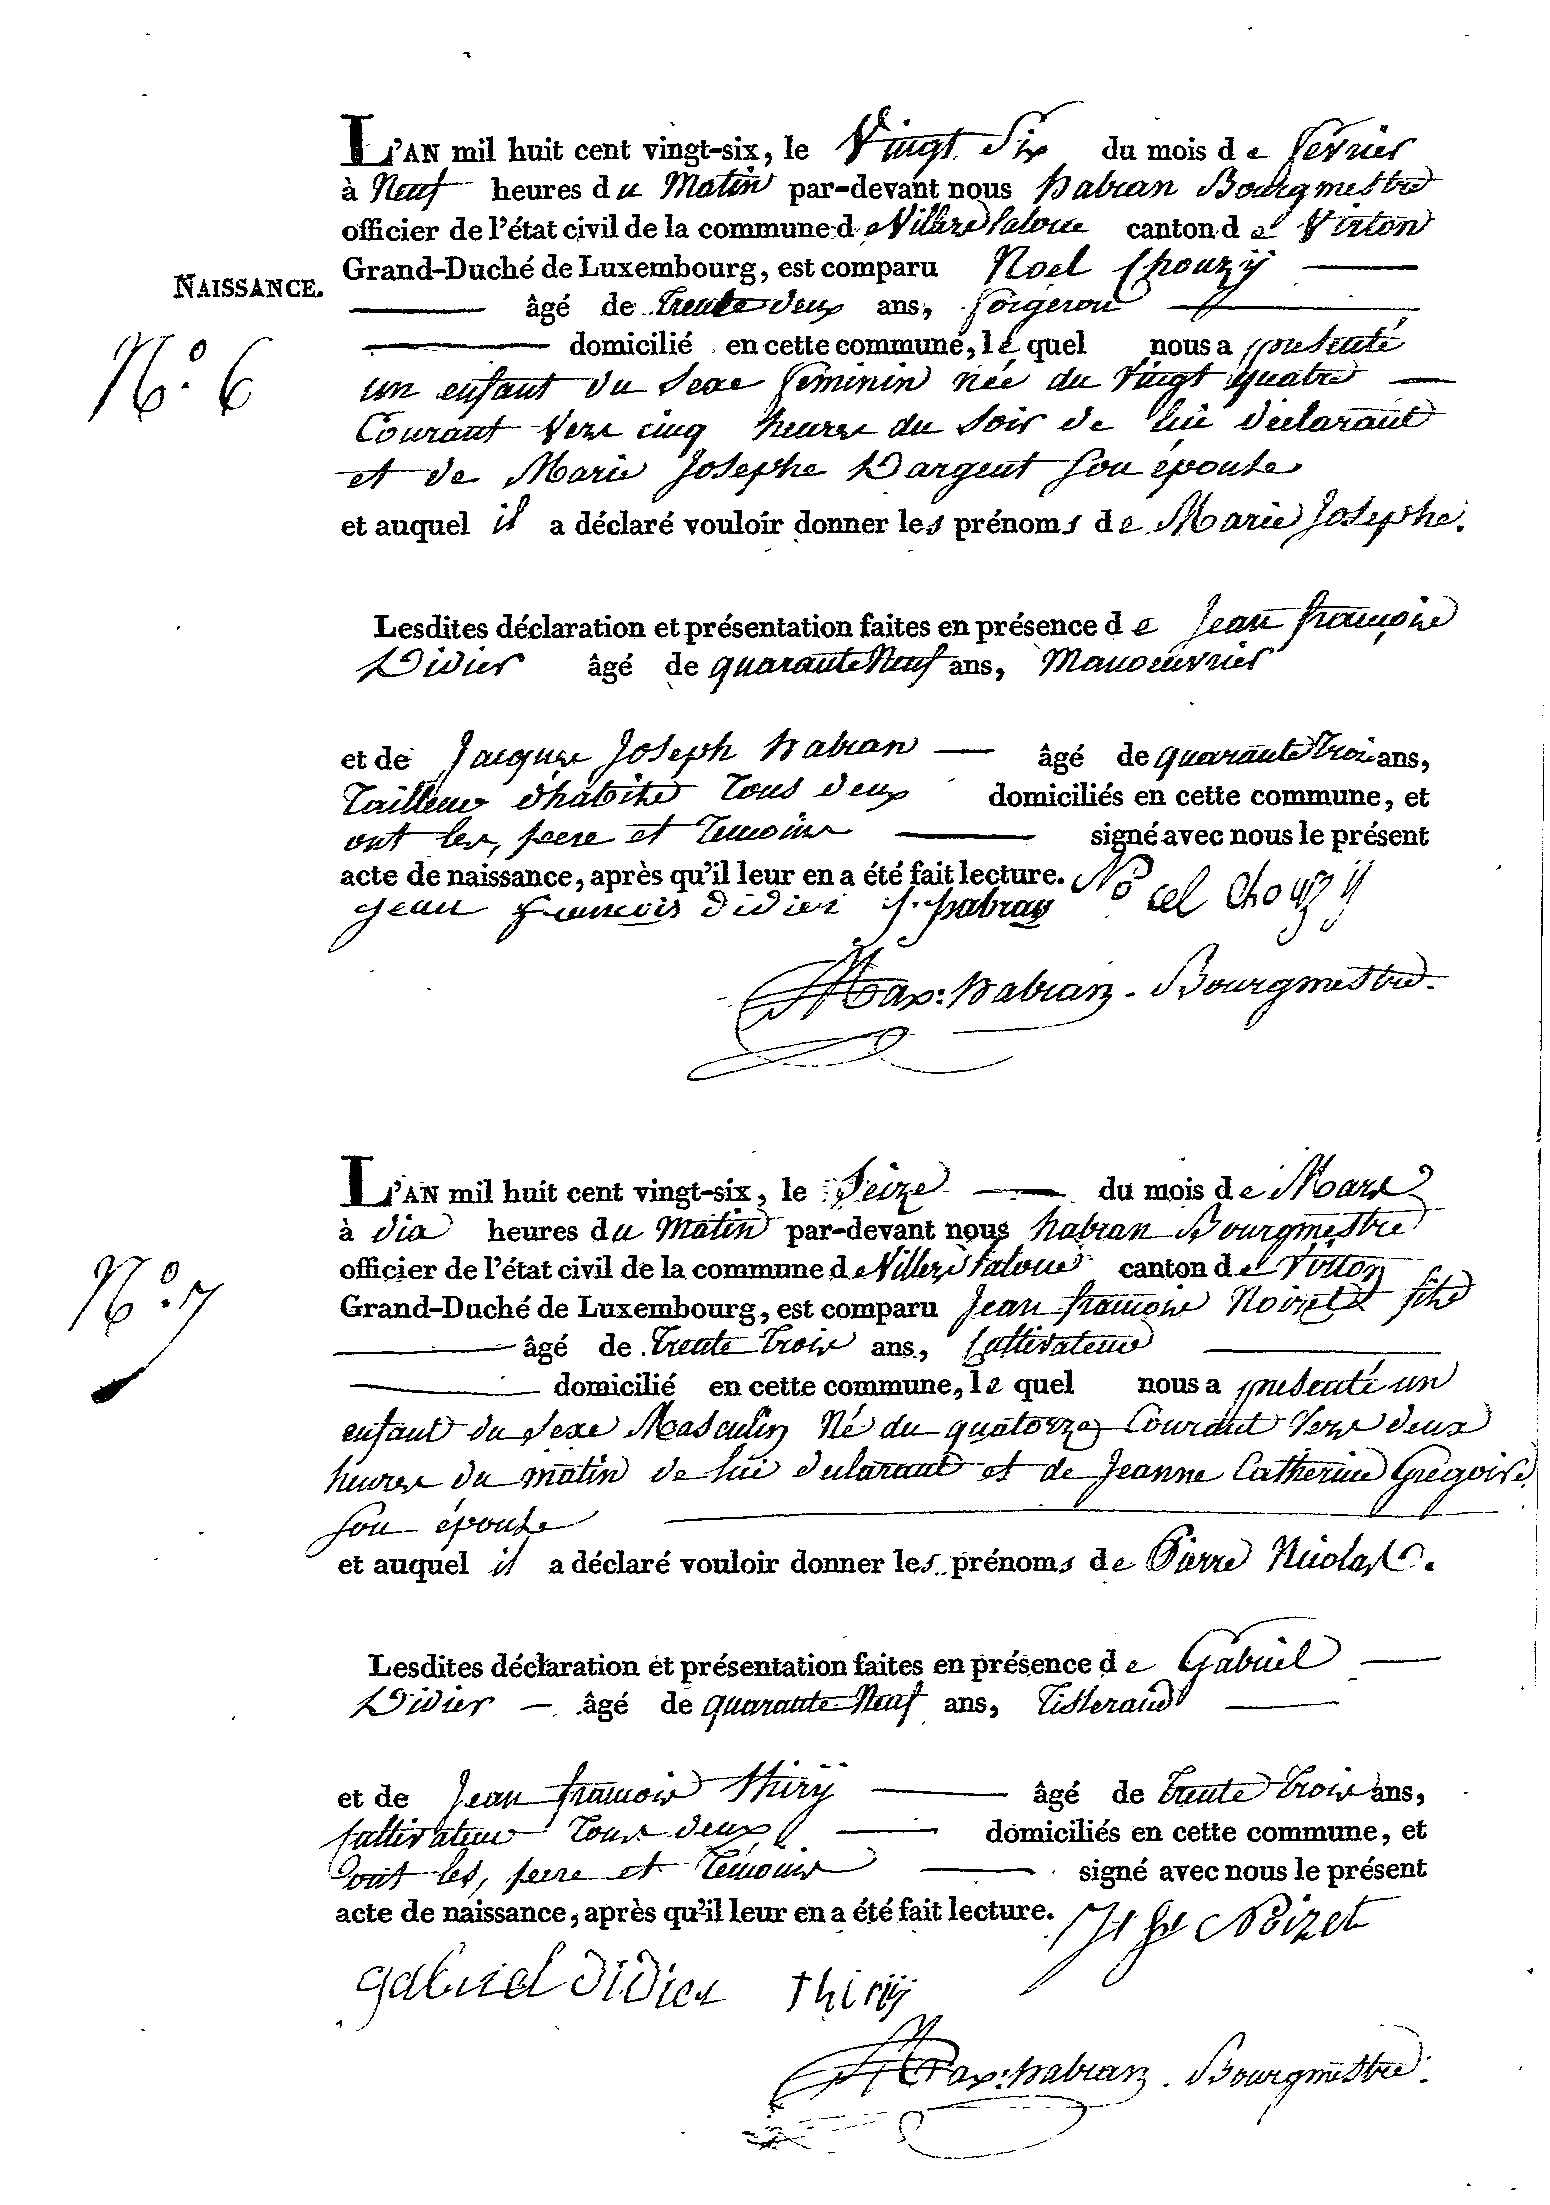 L'AN mil huit cent vingt-six, le Vingt Six du mois de fevrier
à Neuf heures du Matin par-devant nous habran Bourgmestre
officier de l'état civil de la commune de Villers laloue canton de Virton
Grand-Duché de Luxembourg, est comparu Noel Chouzÿ
NAISSANCE.
âgé de trente deux ans, forgeron
N° 6
domicilié en cette commune, le quel nous a presenté
un enfant du sexe feminin née du vingt quatre
Courant vers cinq heures du soir de lui déclarant
et de Marie Josephe Dargent son épouse
et auquel il a déclaré vouloir donner les prénoms de Marie Josephe.
Lesdites déclaration et présentation faites en présence de Jean françois
Didier âgé de quarante Neuf ans, Manouvrier
et de Jacques Joseph habran âgé de quarante trois ans,
Tailleur d'habits tous deux domiciliés en cette commune, et
ont les, pere et temoins signé avec nous le présent
acte de naissance, après qu'il leur en a été fait lecture. Noel Chouzy
jean francois didier J. habran
Max: habran. Bourgmestre.
L'AN mil huit cent vingt-six, le Seize du mois de Mars
à dix heures du Matin par-devant nous habran Bourgmestre
officier de l'état civil de la commune de Villers laloue canton de Virton
N° 7
Grand-Duché de Luxembourg, est comparu Jean françois Noizet fils
âgé de trente trois ans, Cultivateur
domicilié en cette commune, le quel nous a presenté un
enfant du sexe Masculin Né du quatorze Courant vers deux
heures du matin de lui declarant et de Jeanne Catherine Gregoire
son épouse
et auquel il a déclaré vouloir donner les prénoms de Pierre Nicolas.
Lesdites déclaration et présentation faites en présence de Gabriel
Didier âgé de quarante Neuf ans, Tisserand
et de Jean francois thirÿ âgé de trente trois ans,
Cultivateur tous deux domiciliés en cette commune, et
ont les, pere et Témoins signé avec nous le présent
acte de naissance, après qu'il leur en a été fait lecture. Noizet
gabriel didier thirÿ
Max: habran. Bourgmestre.